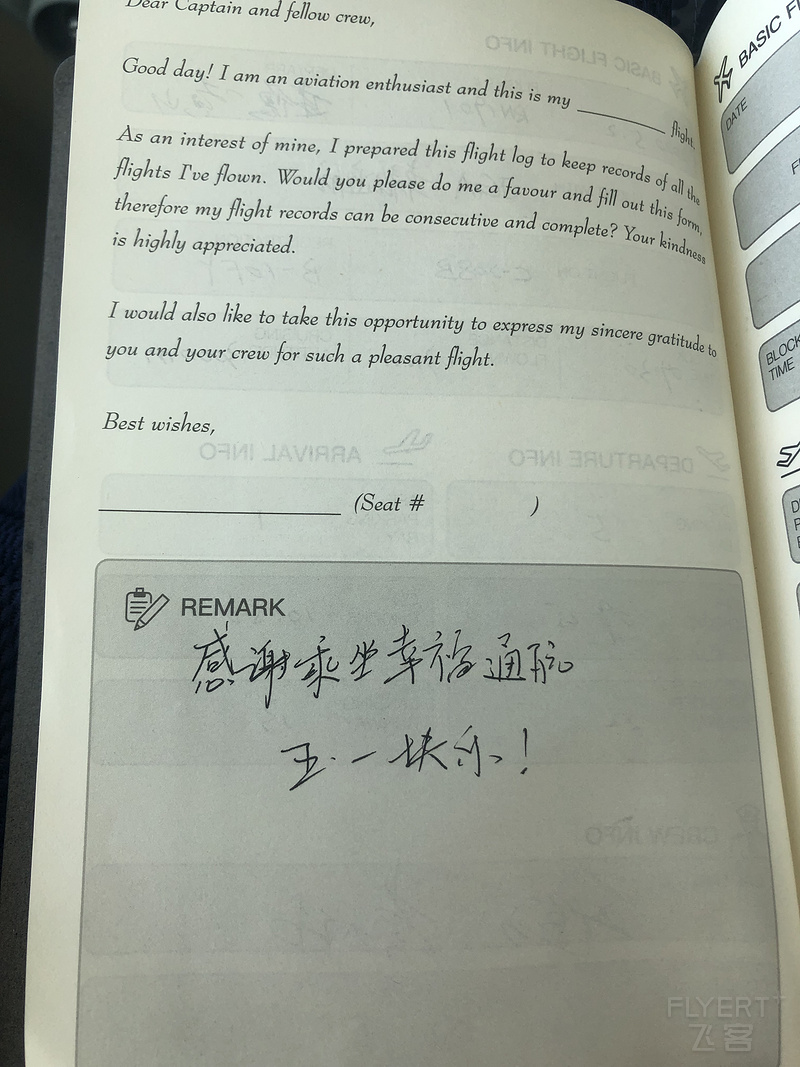 Dear Captain and fellow crew,
Good day! I am an aviation enthusiast and this is my ________ flight.
As an interest of mine, I prepared this flight log to keep records of all the
flights I've flown. Would you please do me a favour and fill out this form,
therefore my flight records can be consecutive and complete? Your kindness
is highly appreciated.
I would also like to take this opportunity to express my sincere gratitude to
you and your crew for such a pleasant flight.
Best wishes,
________________ (Seat # )
REMARK
感谢乘坐幸福通航
五·一快乐!
BASIC FLIGHT INFO
DEPARTURE INFO
ARRIVAL INFO
CREW INFO
BASIC FL
DATE
BLOCK
TIME
FLYERT
飞客